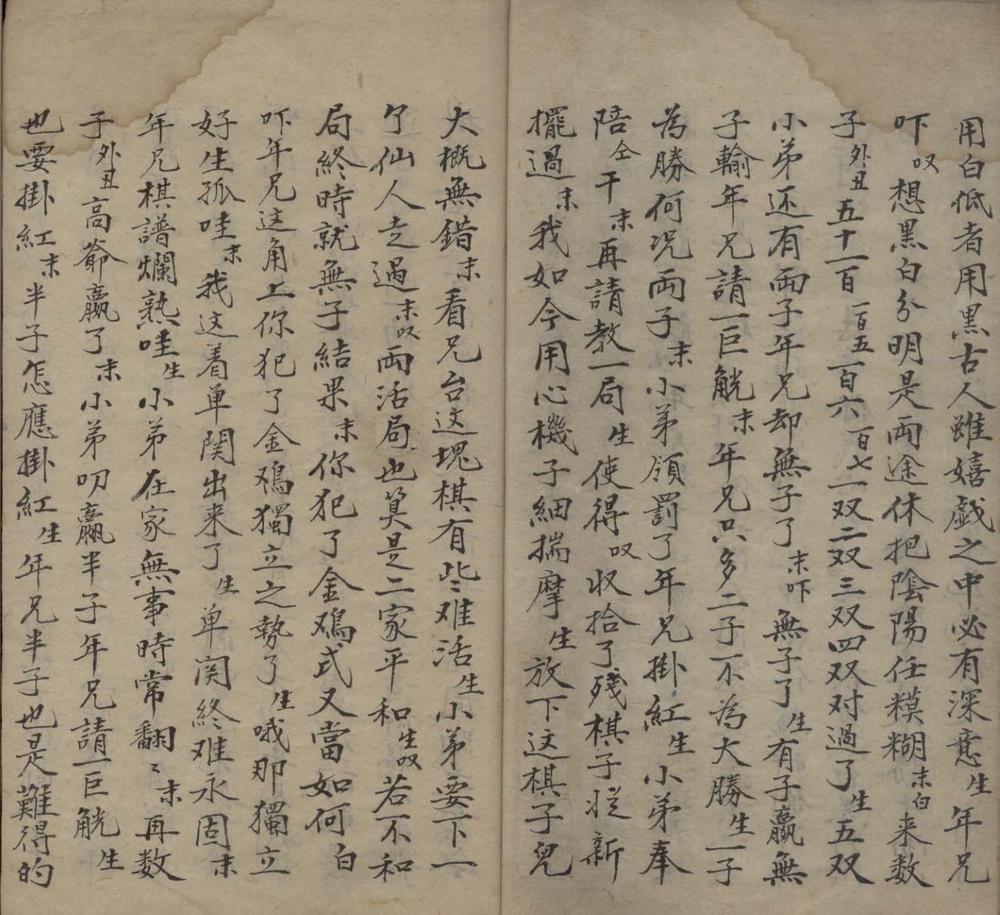 用白低者用黑古人雖嬉戯之中必有深意生年兄
吓叹想黑白分明是両途休把陰陽任糢糊末白来数
子外丑五十一百一百五一百六百七一双二双三双四双对過了生五双
小弟还有両子年兄却無子了末吓無子了生有子贏無
子輸年兄請一巨觥末年兄只多二子不為大勝生一子
為勝何况両子末小弟領罰了年兄掛紅生小弟奉
陪仝干末再請教一局生使得叹收拾了殘棋子從新
擺過末我如今用心機子細揣摩生放下这棋子兒
大概無錯末看兄台这塊棋有些难活生小弟要下一
了仙人走過末叹両活局也算是二家平和生叹若不和
局終時就無子結果末你犯了金鳮式又當如何白
吓年兄这角上你犯了金鳮獨立之勢了生哦那獨立
好生孤哇末我这着单関出来了生单関終难永固末
年兄棋譜爛熟哇生小弟在家無事時常翻〻末再数
子外丑高爺贏了末小弟叨贏半子年兄請一巨觥生
也要掛紅末半子怎應掛紅生年兄半子也是難得的